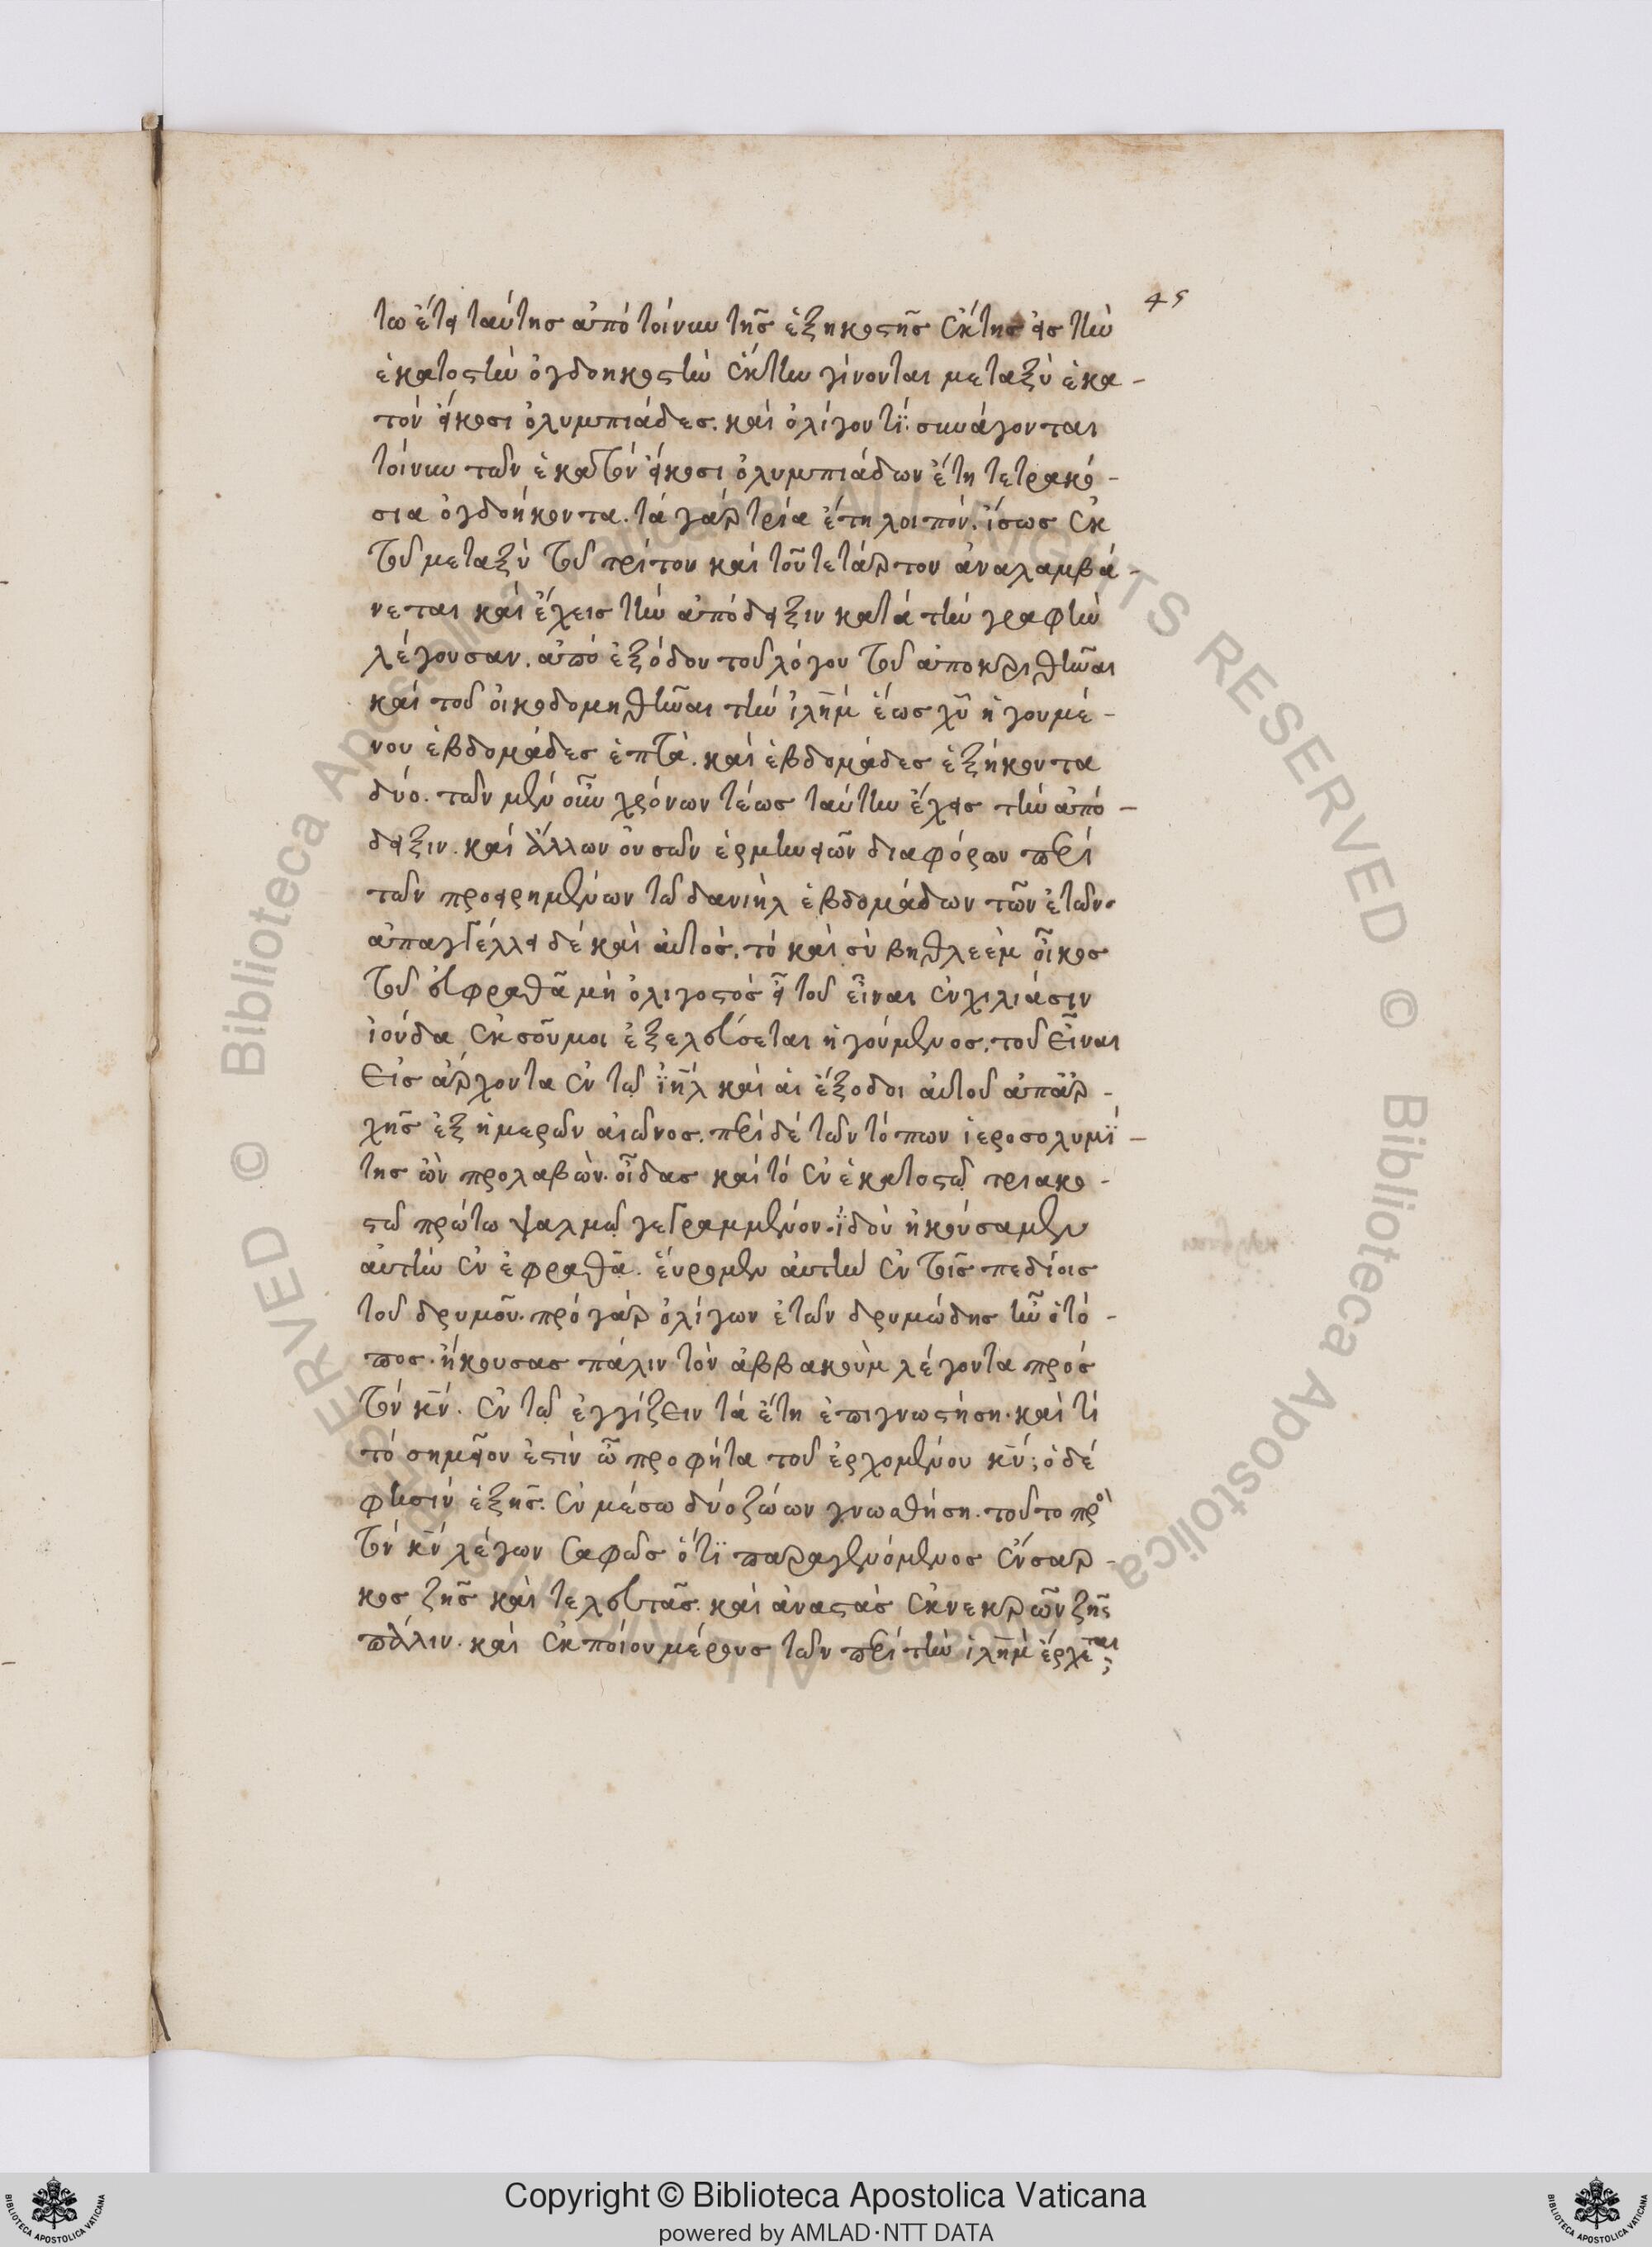 45
τω ἔτει ταύτης ἀπὸ τοίνυν τῆς ἑξηκοστῆς ἕκτης εἰς τὴν
ἑκατοστὴν ὀγδοηκοστὴν ἕκτην γίνονται μεταξὺ ἑκα-
τὸν εἴκοσι ὀλυμπιάδες. καὶ ὀλίγον τί: συνάγονται
τοίνυν τῶν ἑκατὸν εἴκοσι ὀλυμπιάδων ἔτη τετρακό-
σια ὀγδοήκοντα. τὰ γὰρ τρία ἔτη λοιπόν. ἴσως ἐκ
τοῦ μεταξὺ τοῦ τρίτου καὶ τοῦ τετάρτου ἀναλαμβά-
νεται καὶ ἔχεις τὴν ἀπόδειξιν κατὰ τὴν γραφὴν
λέγουσαν. ἀπὸ ἐξόδου τοῦ λόγου τοῦ ἀποκριθῆναι
καὶ τοῦ οἰκοδομηθῆναι τὴν ἰλῆμ ἕως χῦ ἡγουμέ-
νου ἑβδομάδες ἑπτὰ. καὶ ἑβδομάδες ἑξήκοντα
δύο. τῶν μὲν οὖν χρόνων τέως ταύτην ἔχεις τὴν ἀπό-
δειξιν. καὶ ἄλλων οὐσῶν ἑρμηνειῶν διαφόρων περὶ
τῶν προειρημένων τῶ δανιὴλ ἑβδομάδων τῶν ἐτῶν.
ἀπαγγέλλει δὲ καὶ αὐτός. τὸ καὶ σὺ βηθλεὲμ οἶκος
τοῦ εὐφραθᾶ μὴ ὀλιγοστὸς εἶ τοῦ εἶναι ἐν χιλιάσιν
ἰούδα ἐκ σοῦ μοι ἐξελεύσεται ἡγούμενος. τοῦ εἶναι
εἰς ἄρχοντα ἐν τῶ ἰῆλ καὶ αἱ ἔξοδοι αὐτοῦ ἀπ' ἀρ-
χῆς ἐξ ἡμερῶν αἰῶνος. περὶ δὲ τῶν τόπων ἱεροσολυμί-
της ὢν προλαβὼν. οἶδας καὶ τὸ ἐν ἑκατοστῶ τριακο-
στῶ πρώτω ψαλμῶ γεγραμμένον. ἰδοὺ ἠκούσαμεν
αὐτὴν ἐν ἐφραθᾶ. εὕρομεν αὐτὴν ἐν τοῖς πεδίοις
τοῦ δρυμοῦ. πρὸ γὰρ ὀλίγων ἐτῶν δρυμώδης ἦν ὁ τό-
πος. ἤκουσας πάλιν τὸν ἀββακοὺμ λέγοντα πρὸς
τὸν κν̄. ἐν τῶ ἐγγίζειν τὰ ἔτη ἐπιγνωσθήση. καὶ τί
τὸ σημεῖον ἐστὶν ὦ προφῆτα τοῦ ἐρχομένου κῦ; ὁ δὲ
φησὶν ἑξῆς. ἐν μέσω δύο ζώων γνωσθήση. τοῦτο πρὸ
τὸν κν̄ λέγων σαφῶς ὅτι παραγενόμενος ἔνσαρ-
κος ζῆς καὶ τελευτᾶς. καὶ ἀναστὰς ἐκ νεκρῶν ζῆς
πάλιν. καὶ ἐκ ποίου μέρους τῶν περὶ τὴν ἰλῆμ ἔρχεται;